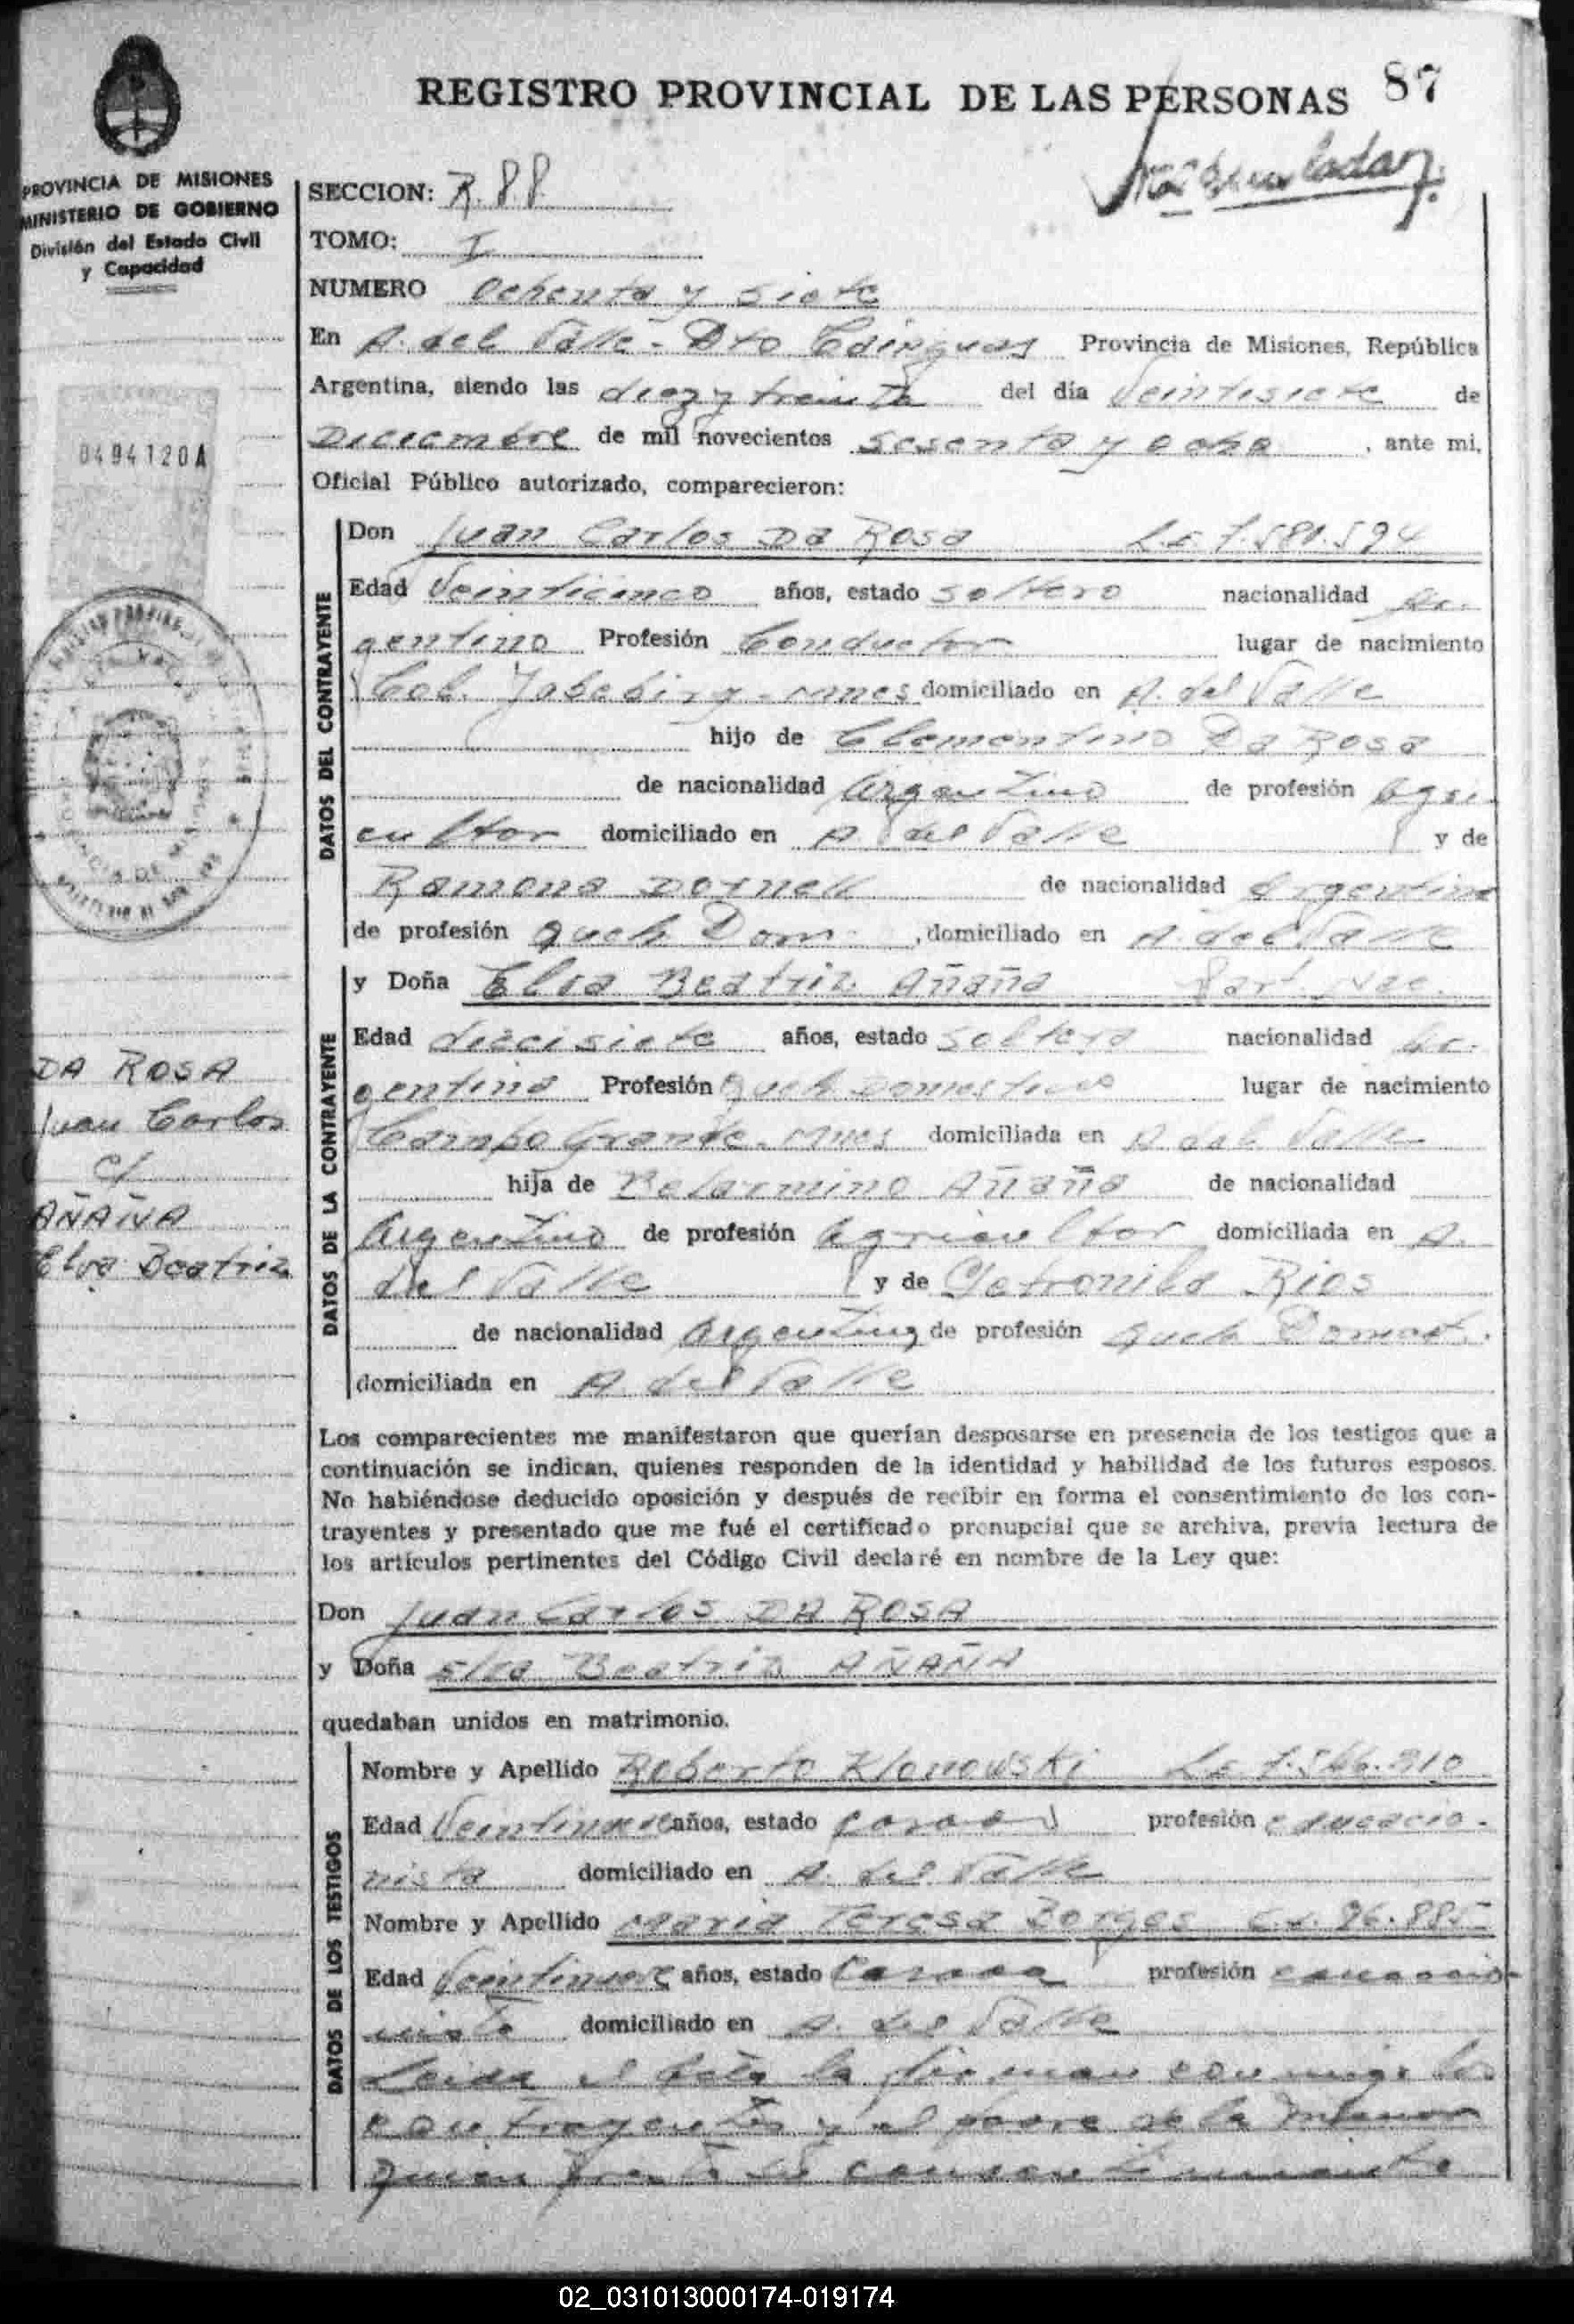 REGISTRO PROVINCIAL DE LAS PERSONAS 87
PROVINCIA DE MISIONES
MINISTERIO DE GOBIERNO
División del Estado Civil
y Capacidad
0494120A
DA ROSA
Juan Carlos
c/
AÑAÑA
Elva Beatriz
SECCION:
TOMO: I
NUMERO Ochenta y Siete
En A. del Valle - Dto Cainguas Provincia de Misiones, República
Argentina, siendo las diez y treinta del día Veintisiete de
Diciembre de mil novecientos Sesenta y ocho, ante mi,
Oficial Público autorizado, comparecieron:
DATOS DEL CONTRAYENTE
Don Juan Carlos Da Rosa L.E 7.581.594
Edad Veinticinco años, estado Soltero nacionalidad Ar-
gentino Profesión Conductor lugar de nacimiento
Col. Yabebiry - Mnes domiciliado en A. del Valle
hijo de Clementino Da Rosa
de nacionalidad Argentino de profesión Agri-
cultor domiciliado en A. del Valle y de
Ramona Dornell de nacionalidad Argentina
de profesión Queh Dom. , domiciliado en A. del Valle
DATOS DE LA CONTRAYENTE
y Doña Elva Beatriz Añaña Part. Nac.
Edad diecisiete años, estado Soltera nacionalidad Ar-
gentina Profesión Queh. Domesticos lugar de nacimiento
Campo Grande - Mnes domiciliada en A. del Valle
hija de Belarmino Añaña de nacionalidad
Argentino de profesión Agricultor domiciliada en A.
del Valle y de Petronila Rios
de nacionalidad Argentina de profesión Queh Domest.
domiciliada en A del Valle
Los comparecientes me manifestaron que querían desposarse en presencia de los testigos que a
continuación se indican, quienes responden de la identidad y habilidad de los futuros esposos.
No habiéndose deducido oposición y después de recibir en forma el consentimiento de los con-
trayentes y presentado que me fué el certificado prenupcial que se archiva, previa lectura de
los artículos pertinentes del Código Civil declaré en nombre de la Ley que:
Don Juan Carlos DA ROSA
y Doña Elva Beatriz AÑAÑA
quedaban unidos en matrimonio.
DATOS DE LOS TESTIGOS
Nombre y Apellido Roberto Klonowski L.E 7.566.310
Edad Veintinueve años, estado Casado profesión educacio-
nista domiciliado en A. del Valle
Nombre y Apellido Maria Teresa Borges C.I. 96.885
Edad Veintinueve años, estado Casada profesión educacio-
nista domiciliado en A. del Valle
Leida el Acta la firman conmigo los
contrayentes y el padre de la menor
quien presta su consentimiento
02_031013000174-019174